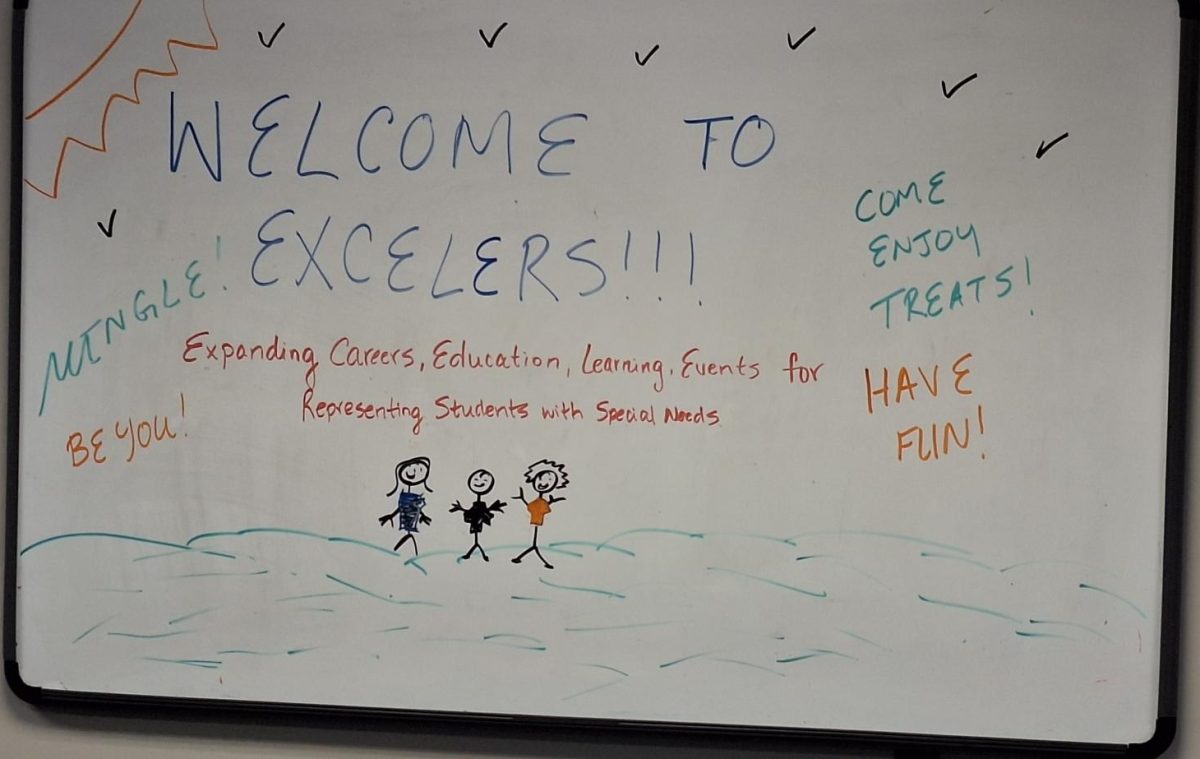 WELCOME TO
EXCELERS!!!
MINGLE!
BE YOU!
Expanding Careers, Education, Learning, Events for
Representing Students with Special Needs
COME
ENJOY
TREATS!
HAVE
FUN!